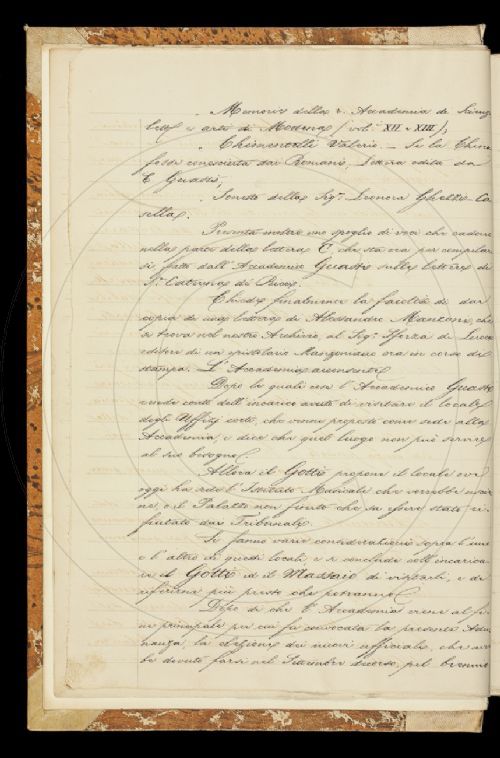 . Memorie della R. Accademia di Scienze
lett. e arti di Modena (vol. XII e XIII);
. Chimentelli Valerio. _ Se la China
fosse conosciuta dai Romani, Lettera edita da
C. Guasti;
. Sonetto della Sig.ª Leonora Ghetti-Ca
sella.
Presenta inoltre uno spoglio di voci che cadono
nella parte della lettera C che sta ora per compilarsi
fatto dall'Accademico Guasti sulle lettere di
S. Caterina de' Ricci.
Chiede finalmente la facoltà di dar
copia di una lettera di Alessandro Manzoni, che
si trova nel nostro Archivio, al Sig. Sforza di Lucca
editore di un epistolario Manzoniano ora in corso di
stampa. L'Accademia acconsente.
Dopo le quali cose l'Accademico Guasti
rende conto dell'incarico avuto di visitare il locale
degli Uffizi corti, che venne proposto come sede alla
Accademia, e dice che quel luogo non può servire
al suo bisogno.
Allora il Gotti propone il locale ove
oggi ha sede l'Istituto Musicale che verrebbe
e il Palazzo non finito che sa essere stato ri-
fiutato dai Tribunali.
Si fanno varie considerazioni sopra l'uno
e l'altro di questi locali, e si conclude coll'incarica-
re il Gotti ed il Massaio di visitarli, e di
riferirne più presto che potranno.
Dopo di che l'Accademia viene al fi-
ne principale per cui fu convocata la presente Adu-
nanza, la elezione dei nuovi ufficiali, che avreb-
be dovuto farsi nel Settembre decorso, pel biennio